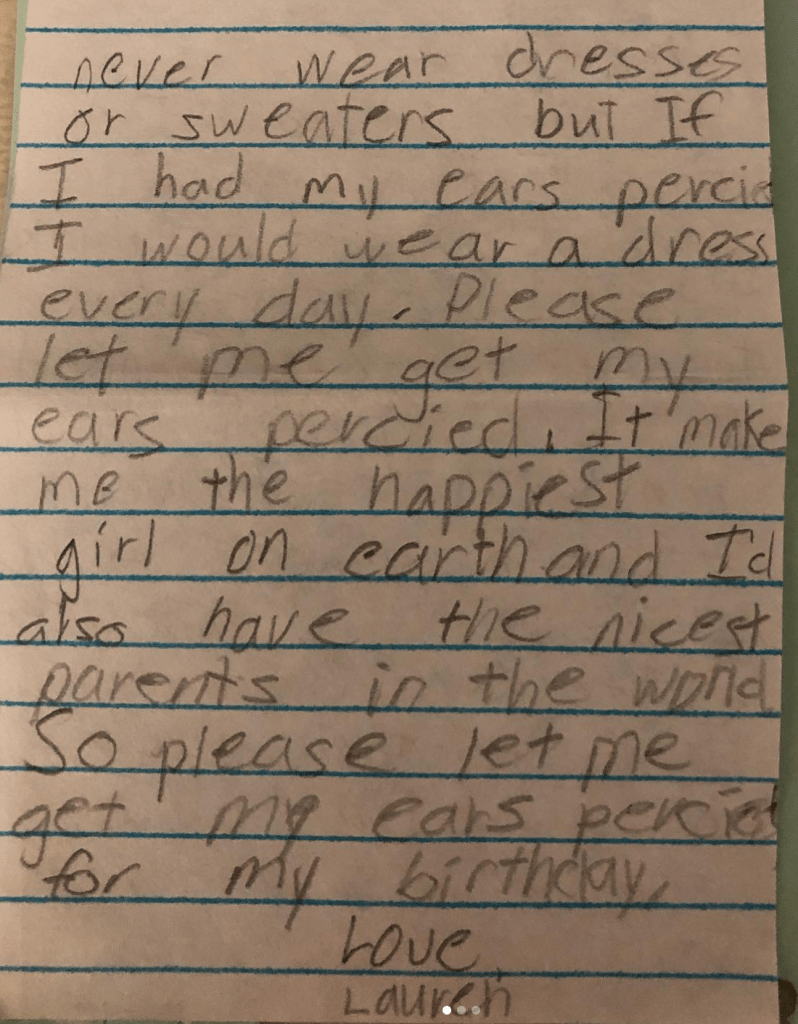 never wear dresses
or sweaters but If
I had my ears percie
I would wear a dress
every day. Please
let me get my
ears percied. It make
me the happiest
girl on earth and I'd
also have the nicest
parents in the world
So please let me
get my ears percied
for my birthday.
Love,
Lauren